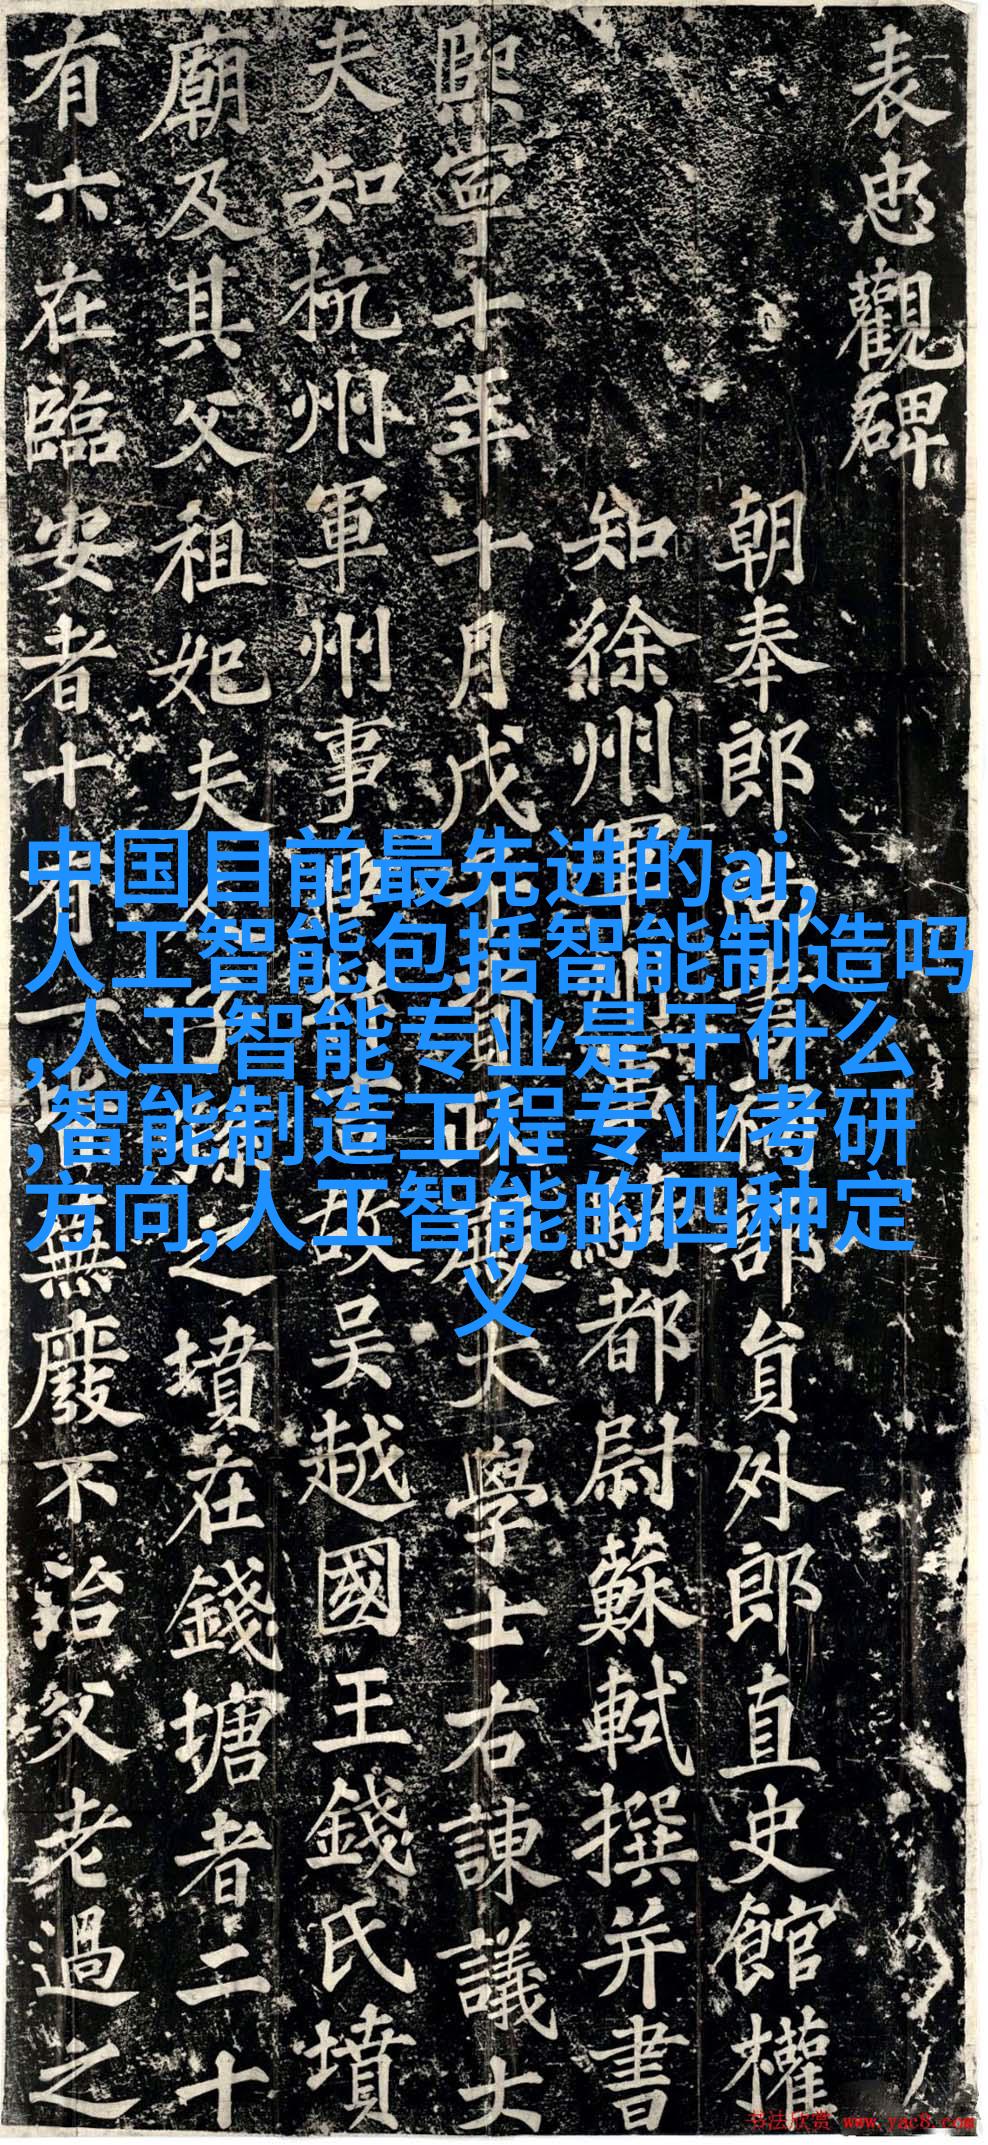 表忠觀碑
朝奉郎尚書祠部員外郎直史館權
知徐州軍州事騎都尉蘇軾撰并書
熙寧十年十月戊子資政殿大學士右諫議大
夫知杭州軍州事臣抃言故吳越國王錢氏墳
廟及其父祖妃夫人子孫之墳在錢塘者二十
有六在臨安者十有一皆蕪廢不治父老過之
中国目前最先进的ai,
人工智能包括智能制造吗
,人工智能专业是干什么
,智能制造工程专业考研
方向,人工智能的四种定
义
书法欣赏 www.yac8.com